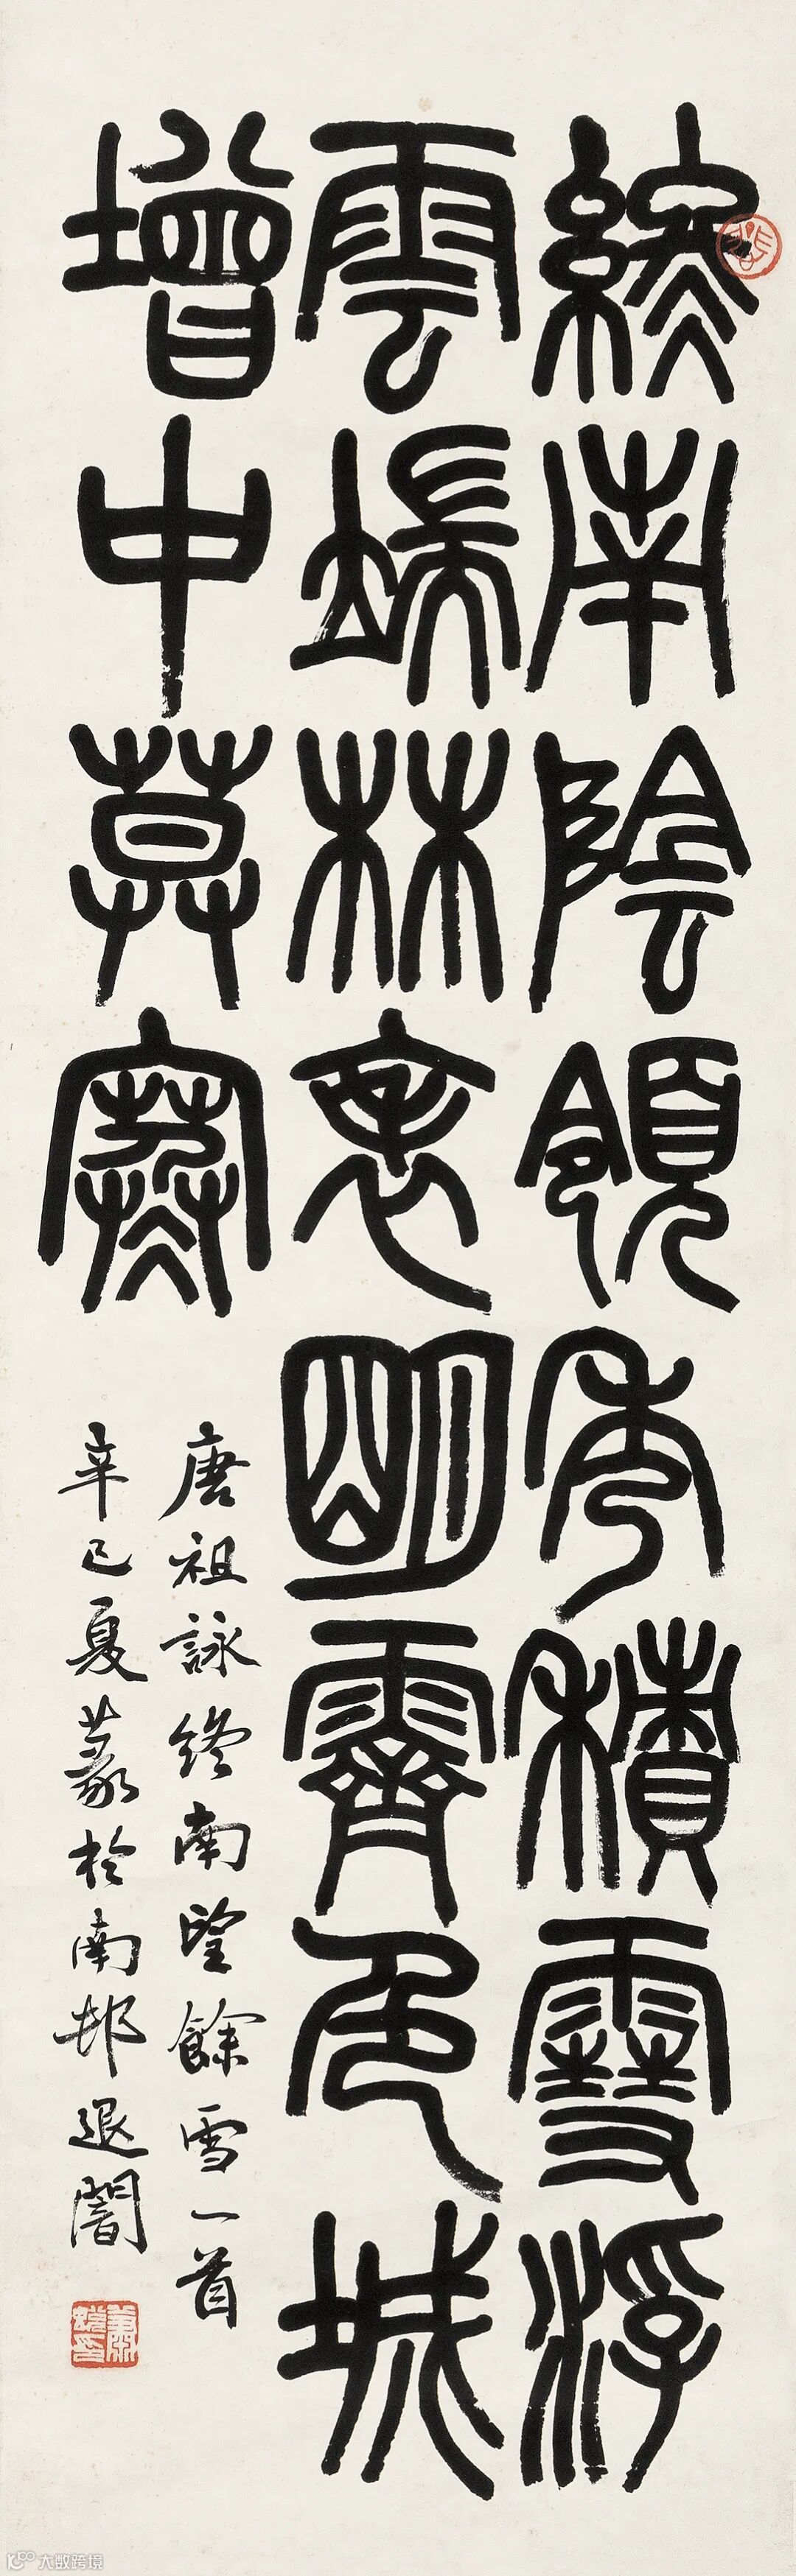 終南陰領秀積雪浮
雲端林表明霽色城
增中莫寒
唐祖詠終南望餘雪一首
辛巳夏篆於南邨退闇
大数跨境